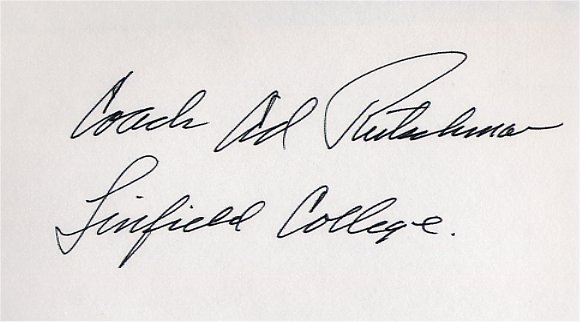 Coach Ad Rutschman
Linfield College.